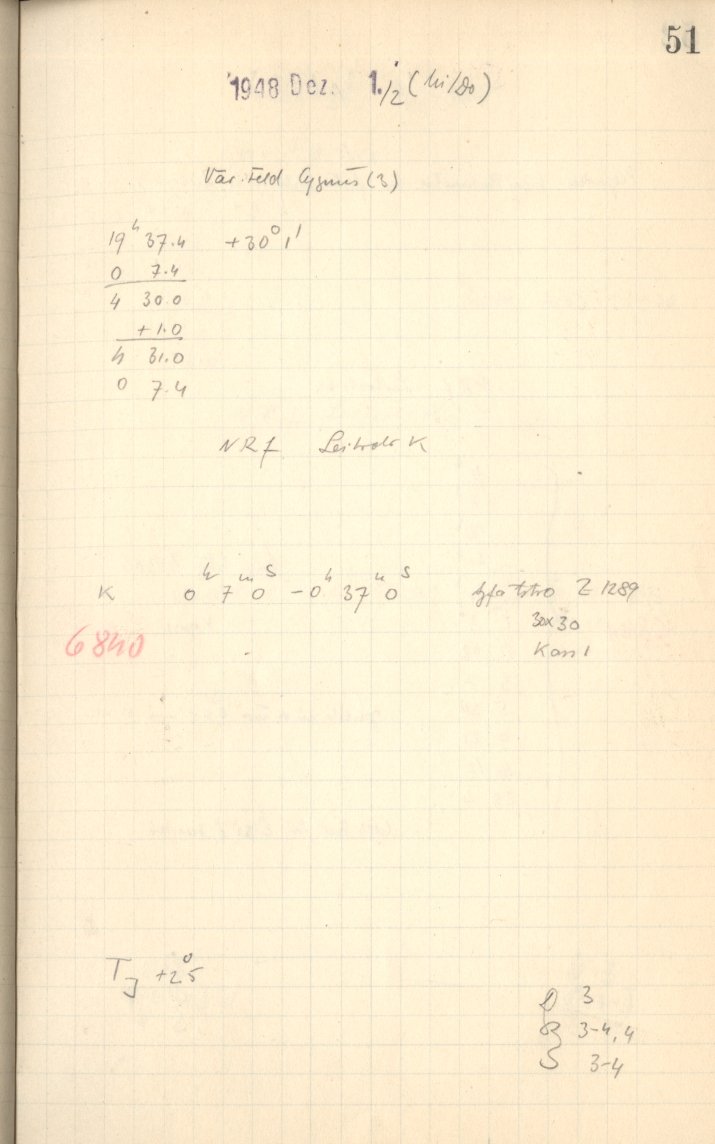 51
1948 Dez. 1./2 (Mi/Do)
Var. Feld Cygnus (3)
19ʰ 37.4 +30° 1'
0 7.4
4 30.0
+1.0
4 31.0
0 7.4
NRf Leitrohr K
K 0ʰ 7ᵐ 0ˢ – 0ʰ 37ᵐ 0ˢ Agfa Astro Z 1289
6840 30x30
Kass 1
T_J +2°5
D 3
R 3-4, 4
S 3-4